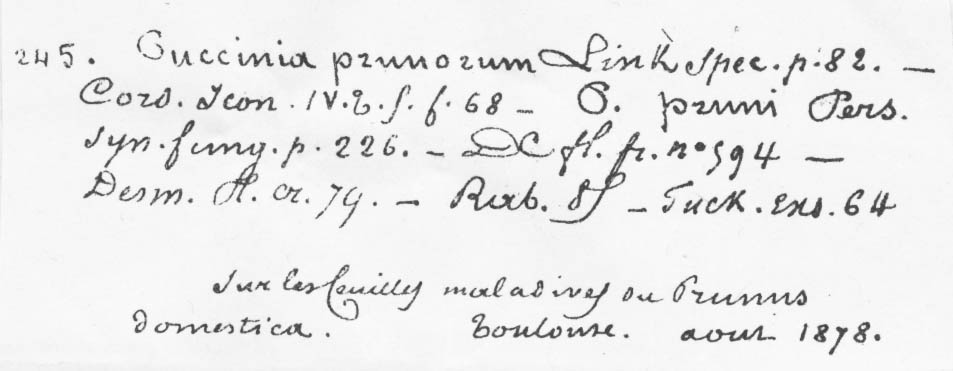 245. Puccinia prunorum Link Spec. p. 82. —
Cord. Icon. IV. t. f. f. 68 — P. pruni Pers.
Syn. fung. p. 226. — DC fl. fr. no 594 —
Desm. Pl. cr. 79. — Rab. — Fuck. Exs. 64
Sur les feuilles maladives du Prunus
domestica. Toulouse. aout 1878.